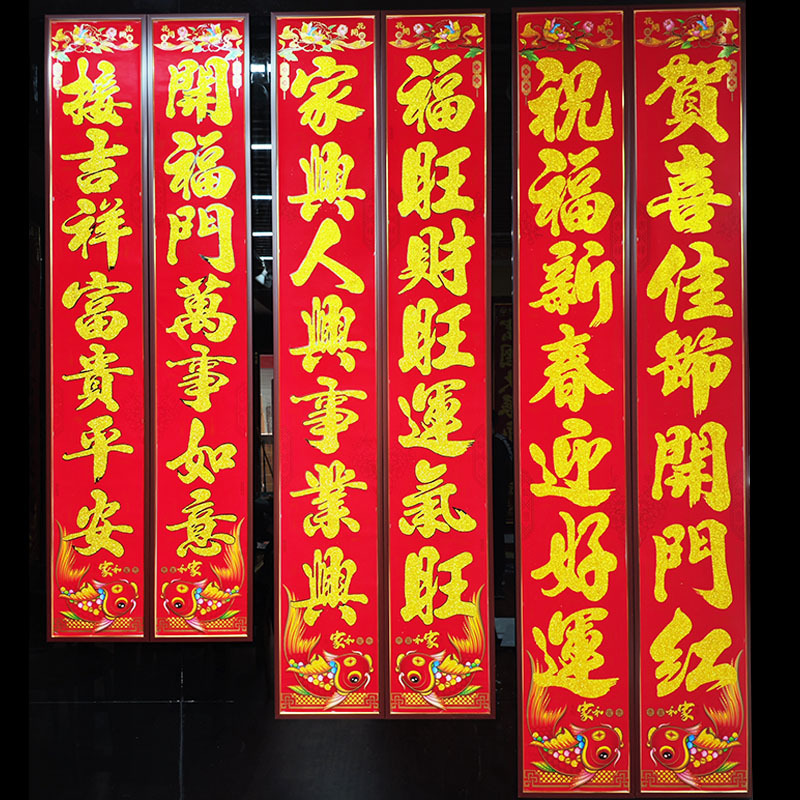 開福門萬事如意
接吉祥富貴平安
福旺財旺運氣旺
家興人興事業興
賀喜佳節開門紅
祝福新春迎好運
家和
家和
家和
家和
家和
家和